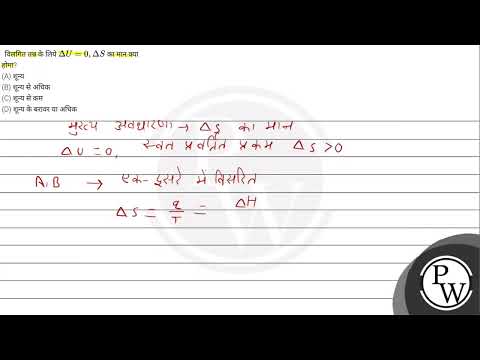 विलगित तन्त्र के लिये ΔU = 0, ΔS का मान क्या
होगा?
(A) शून्य
(B) शून्य से अधिक
(C) शून्य से कम
(D) शून्य के बराबर या अधिक
मुख्य अवधारणा → ΔS का मान
ΔU = 0, स्वत प्रवर्तित प्रक्रम ΔS > 0
A, B → एक-दूसरे में विसरित
ΔS = q/T = ΔH
PW